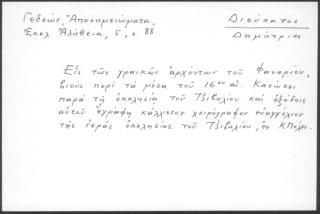 Γεδεών, Ἀποσημειώματα,
Ἐκκλ. Ἀλήθεια, 5, σ. 88
Δισύπατος
Δημήτριος
Εἷς τῶν γραικῶν ἀρχόντων τοῦ Φαναρίου,
βιοὺς περὶ τὰ μέσα τοῦ 16ου αἰ. Κατώκει
παρὰ τῇ ἐκκλησίᾳ τοῦ Τζιβαλίου καὶ ἐξόδοις
αὐτοῦ ἐγράφη κάλλιστον χειρόγραφον εὐαγγέλιον
τῆς ἱερᾶς ἐκκλησίας τοῦ Τζιβαλίου, ἐν Κπόλει.